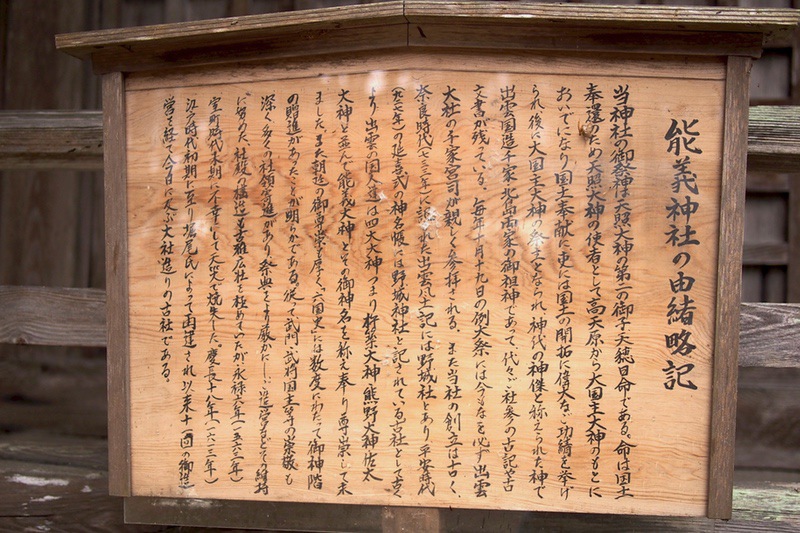 能義神社の由緒略記
当神社の御祭神は天照大神の第二の御子天穂日命である。命は国土
奉還のため天照大神の使者として高天原から大国主大神のもとに
おいでになり国土奉献に更には国土の開拓に偉大な功績を挙げ
られ後に大国主大神の祭主となられ神代の神傑と称えられた神で
出雲国造千家、北島両家の御祖神であって、代々ご社参の古記や古
文書が残っている。毎年十月十九日の例大祭には今もなを必ず出雲
大社の千家宮司が親しく参拝される。また当社の創立は古く、
奈良時代(七三三年)に記された出雲風土記には野城社とあり平安時代
(九二七年)の延喜式の神名帳には野城神社と記されている古社として古く
より、出雲の国人達は四大大神つまり杵築大神熊野大神佐太
大神と並んで能義大神とその御神名を称え奉り尊崇して来
ました。また朝廷の御尊崇も厚く、六国史には数度にわたって御神階
の贈進があったことが明らかである。従て武門、武将国主等の崇敬も
深く多くの社領寄進があり、祭典もより厳かにしご造営などその維持
に努め、社殿の構造も荘厳を極めていたが永禄六年(一五六二年)
室町時代末期に不幸にして天災で焼失した。慶長十八年(一六一三年)
江戸時代初期に至り堀尾氏によって再建され以来十一回の御造
営を経て今日に及ぶ大社造りの古社である。